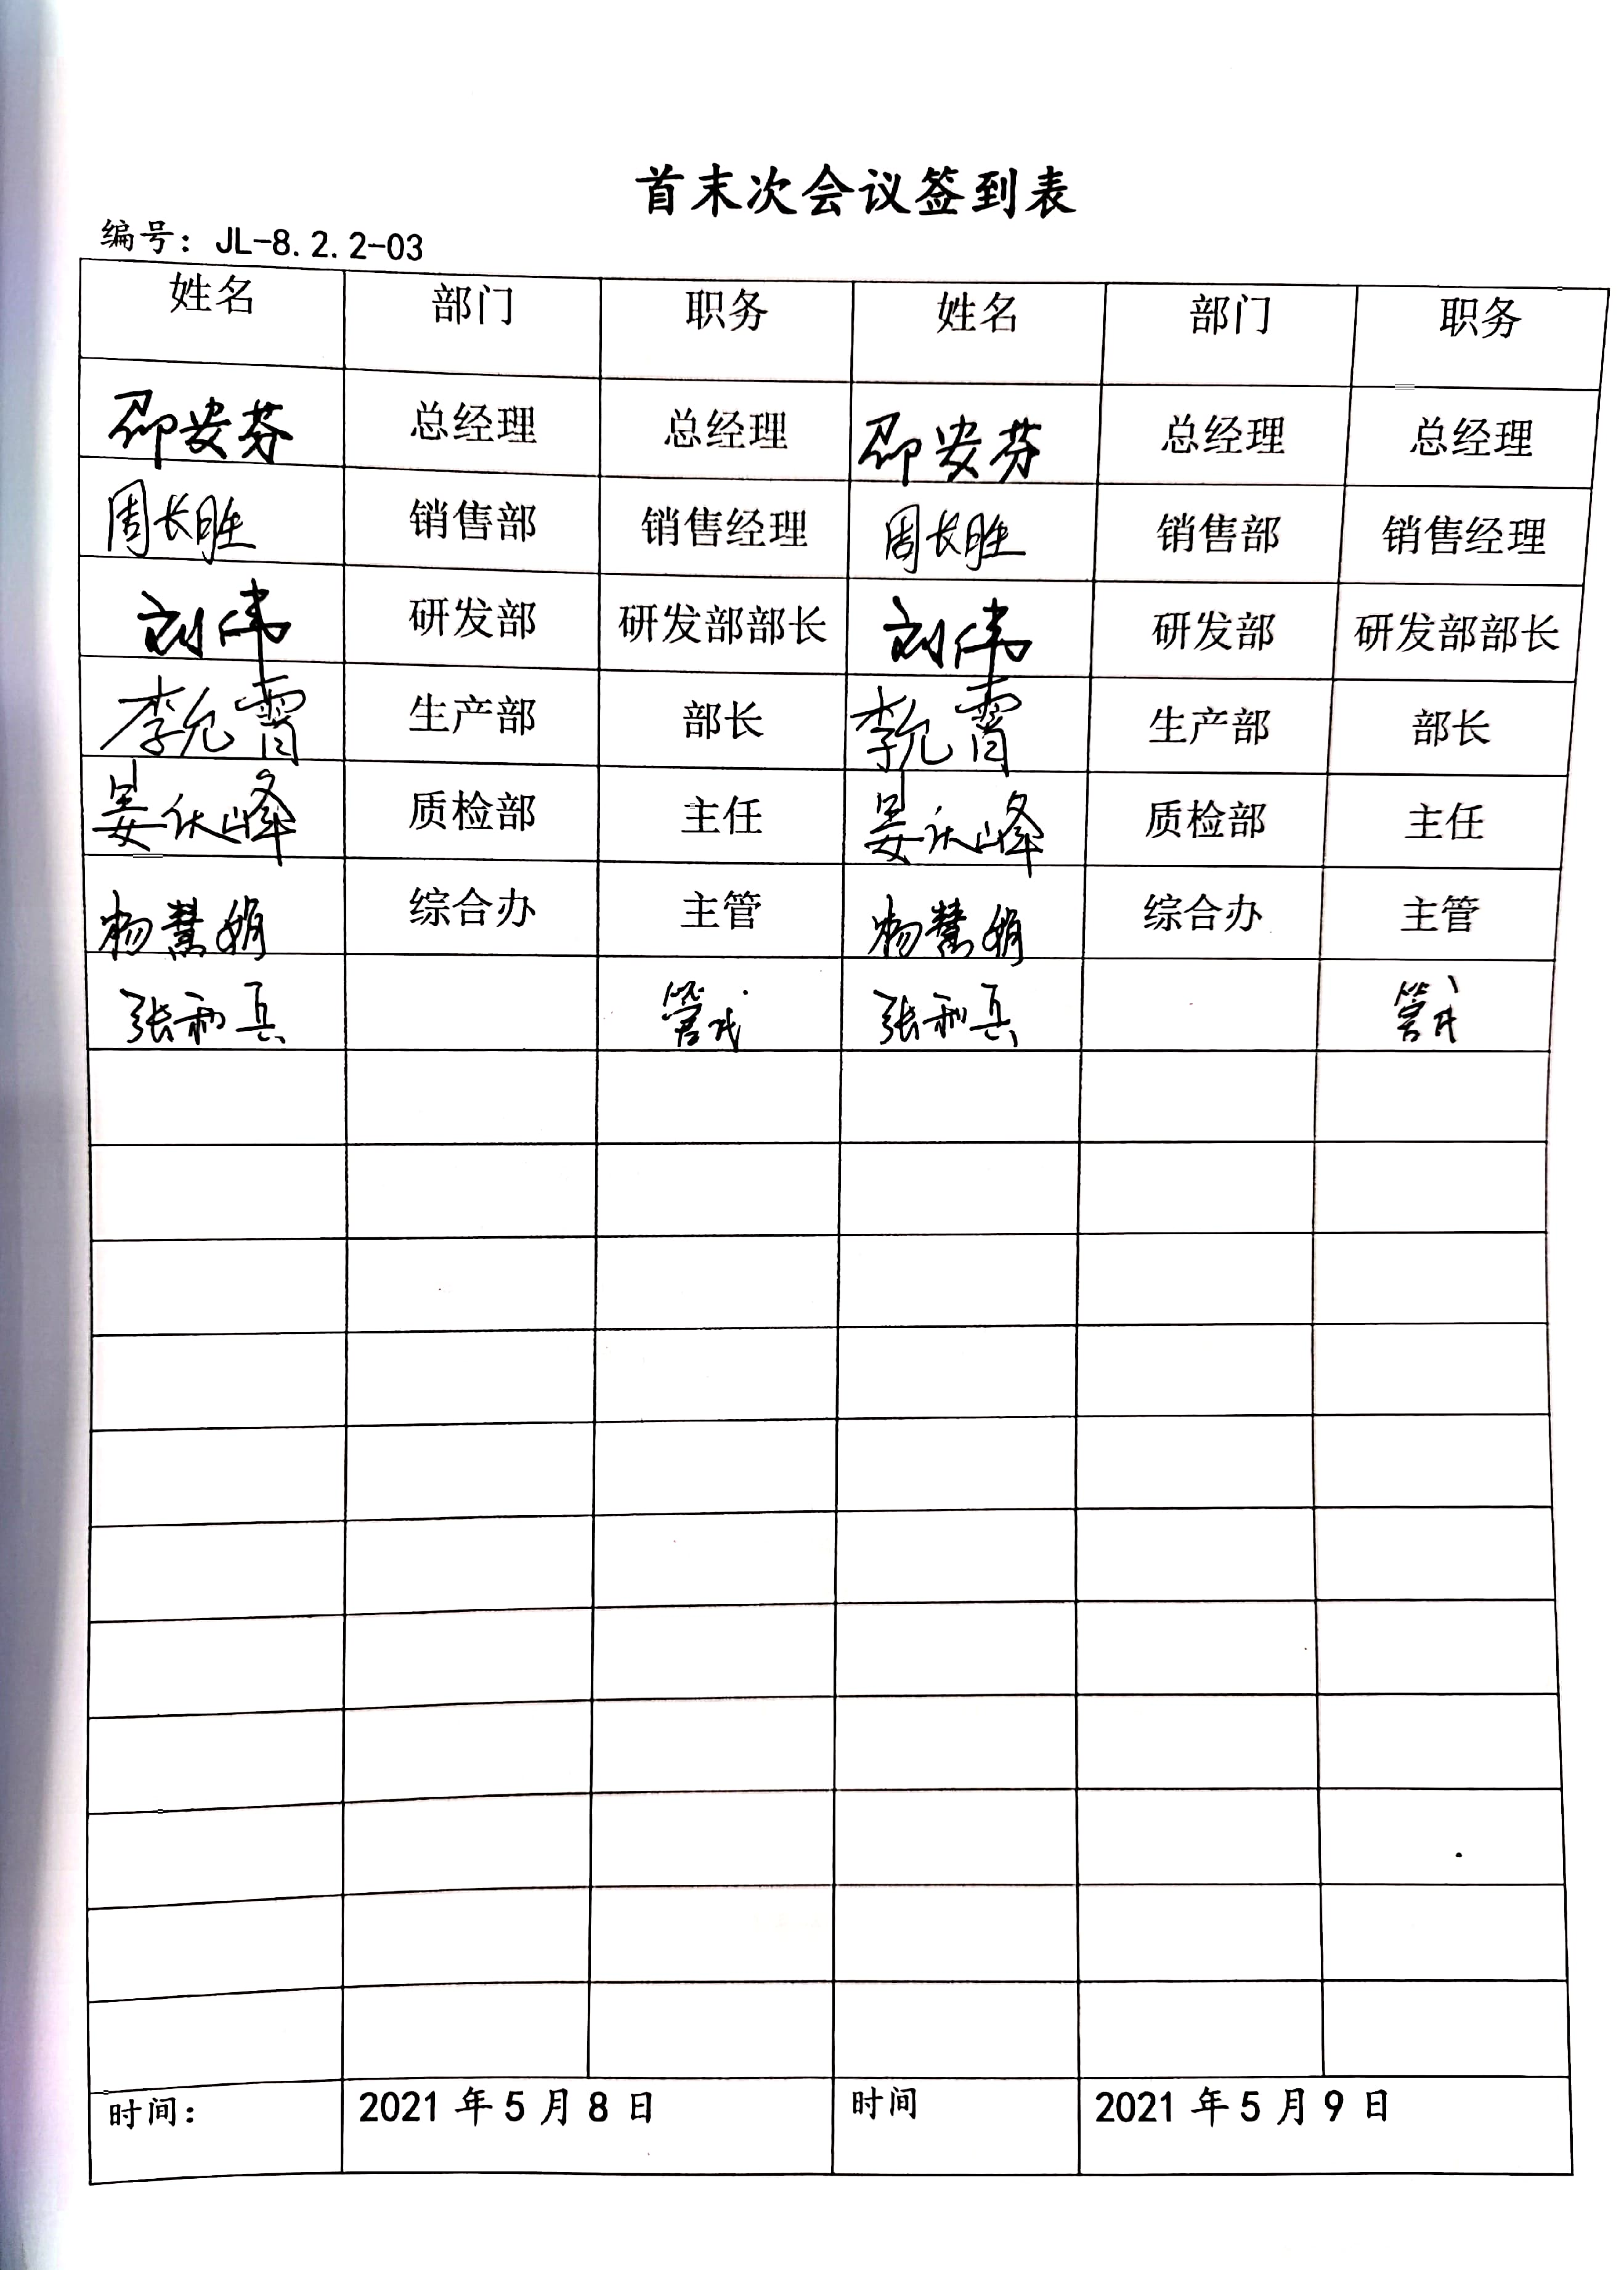 首末次会议签到表
编号：JL-8.2.2-03
姓名 部门 职务 姓名 部门 职务
邵安芬 总经理 总经理 邵安芬 总经理 总经理
周长胜 销售部 销售经理 周长胜 销售部 销售经理
刘伟 研发部 研发部部长 刘伟 研发部 研发部部长
李允霄 生产部 部长 李允霄 生产部 部长
峰 质检部 主任 峰 质检部 主任
杨慧娟 综合办 主管 杨慧娟 综合办 主管
张和兵 张和兵
时间： 2021 年 5 月 8 日 时间 2021 年 5 月 9 日